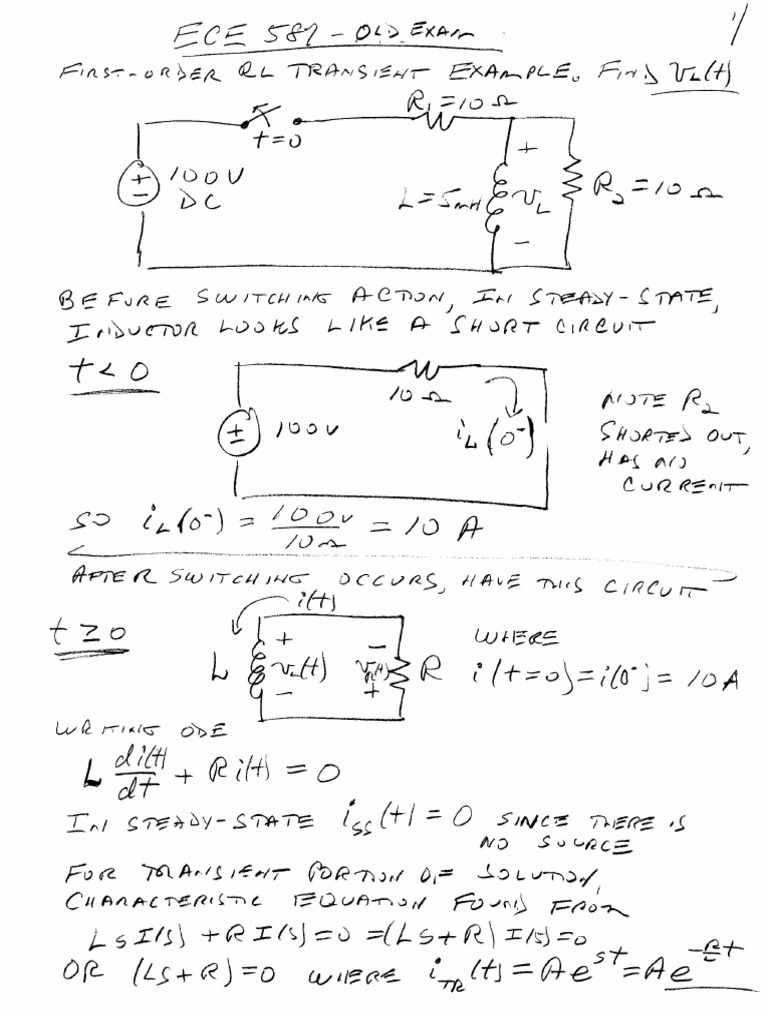 1/
ECE 582 - OLD EXAM
FIRST-ORDER RL TRANSIENT EXAMPLE. FIND VL(t)
R1=10 Ω
t=0
+
100V
DC
+
-
L=5mH
VL
R2=10 Ω
-
BEFORE SWITCHING ACTION, IN STEADY-STATE,
INDUCTOR LOOKS LIKE A SHORT CIRCUIT
t<0
10 Ω
+
-
100V
iL(0-)
NOTE R2
SHORTED OUT,
HAS NO
CURRENT
SO iL(0-) = 100V/10Ω = 10 A
AFTER SWITCHING OCCURS, HAVE THIS CIRCUIT
i(t)
t≥0
+
-
L
VL(t)
VR(t)
R
-
+
WHERE
i(t=0)=i(0-)=10A
WRITING ODE
L di(t)/dt + Ri(t) = 0
IN STEADY-STATE iss(t)=0 SINCE THERE IS
NO SOURCE
FOR TRANSIENT PORTION OF SOLUTION,
CHARACTERISTIC EQUATION FOUND FROM
LsI(s) + RI(s)=0 =(Ls+R)I(s)=0
OR (Ls+R)=0 WHERE iTR(t)=Ae^st=Ae^-R/L t